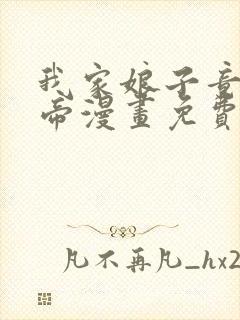 我家娘子竟
帝漫畫免費
凡不再凡_hx2